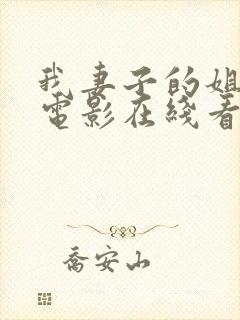 我妻子的姐
電影在綫看
喬安山